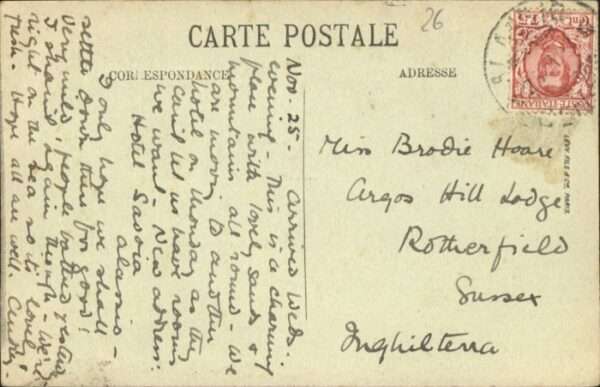 26
CARTE POSTALE
CORRESPONDANCE
ADRESSE
Nov. 25 - Arrived Weds.
evening - This is a charming
place with lovely sands &
mountains all round - We
are moving to another
hotel on Monday as they
can't let us have rooms
we want - New address:
Hotel Savoia
Alassio -
I only hope we shall
settle down there for good!
Very mild, people bathed yesterday
I shared again though - We're
right on the sea so its lovely &
fresh. Hope all are well.
Miss Brodie Hoare
Argos Hill Lodge
Rotherfield
Sussex
Inghilterra
LEVY FILS & CO. PARIS
POSTE ITALIANE